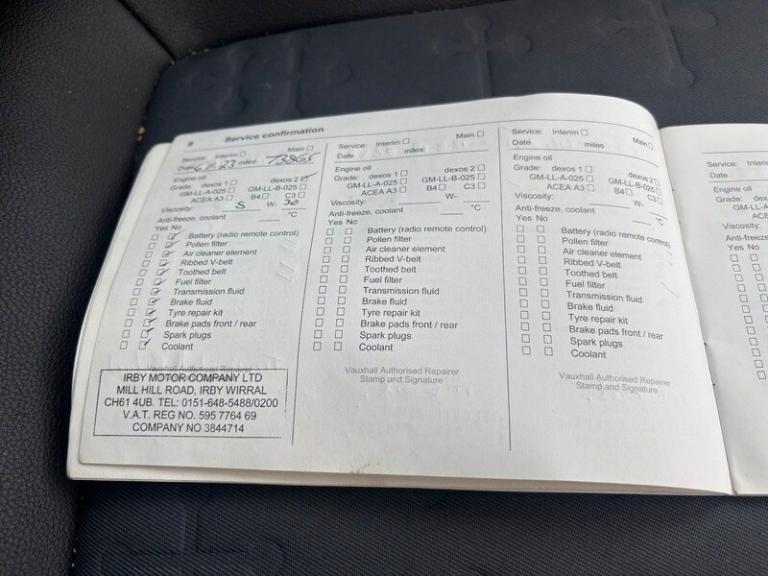 8 Service confirmation
Service: Interim ☐ Main ☐
Date miles 73865
Engine oil
Grade: dexos 1 ☐ dexos 2 ☑
GM-LL-A-025 ☐ GM-LL-B-025 ☐
ACEA A3 ☐ B4 ☐ C3 ☐
Viscosity: 5 W- 30
Anti-freeze, coolant °C
Yes No
☐ ☑ Battery (radio remote control)
☐ ☑ Pollen filter
☐ ☑ Air cleaner element
☐ ☑ Ribbed V-belt
☐ ☑ Toothed belt
☐ ☑ Fuel filter
☐ ☑ Transmission fluid
☐ ☑ Brake fluid
☐ ☑ Tyre repair kit
☐ ☑ Brake pads front / rear
☐ ☑ Spark plugs
☐ ☑ Coolant
Vauxhall Authorised Repairer
IRBY MOTOR COMPANY LTD
MILL HILL ROAD, IRBY WIRRAL
CH61 4UB. TEL: 0151-648-5488/0200
V.A.T. REG NO. 595 7764 69
COMPANY NO 3844714
Service: Interim ☐ Main ☐
Date miles
Engine oil
Grade: dexos 1 ☐ dexos 2 ☐
GM-LL-A-025 ☐ GM-LL-B-025 ☐
ACEA A3 ☐ B4 ☐ C3 ☐
Viscosity: W-
Anti-freeze, coolant °C
Yes No
☐ ☐ Battery (radio remote control)
☐ ☐ Pollen filter
☐ ☐ Air cleaner element
☐ ☐ Ribbed V-belt
☐ ☐ Toothed belt
☐ ☐ Fuel filter
☐ ☐ Transmission fluid
☐ ☐ Brake fluid
☐ ☐ Tyre repair kit
☐ ☐ Brake pads front / rear
☐ ☐ Spark plugs
☐ ☐ Coolant
Vauxhall Authorised Repairer
Stamp and Signature
Service: Interim ☐ Main ☐
Date miles
Engine oil
Grade: dexos 1 ☐ dexos 2 ☐
GM-LL-A-025 ☐ GM-LL-B-025 ☐
ACEA A3 ☐ B4 ☐ C3 ☐
Viscosity: W-
Anti-freeze, coolant °C
Yes No
☐ ☐ Battery (radio remote control)
☐ ☐ Pollen filter
☐ ☐ Air cleaner element
☐ ☐ Ribbed V-belt
☐ ☐ Toothed belt
☐ ☐ Fuel filter
☐ ☐ Transmission fluid
☐ ☐ Brake fluid
☐ ☐ Tyre repair kit
☐ ☐ Brake pads front / rear
☐ ☐ Spark plugs
☐ ☐ Coolant
Vauxhall Authorised Repairer
Stamp and Signature
Service: Interi
Date
Engine oil
Grade: dex
GM-LL-A
ACE
Viscosity:
Anti-freeze
Yes No